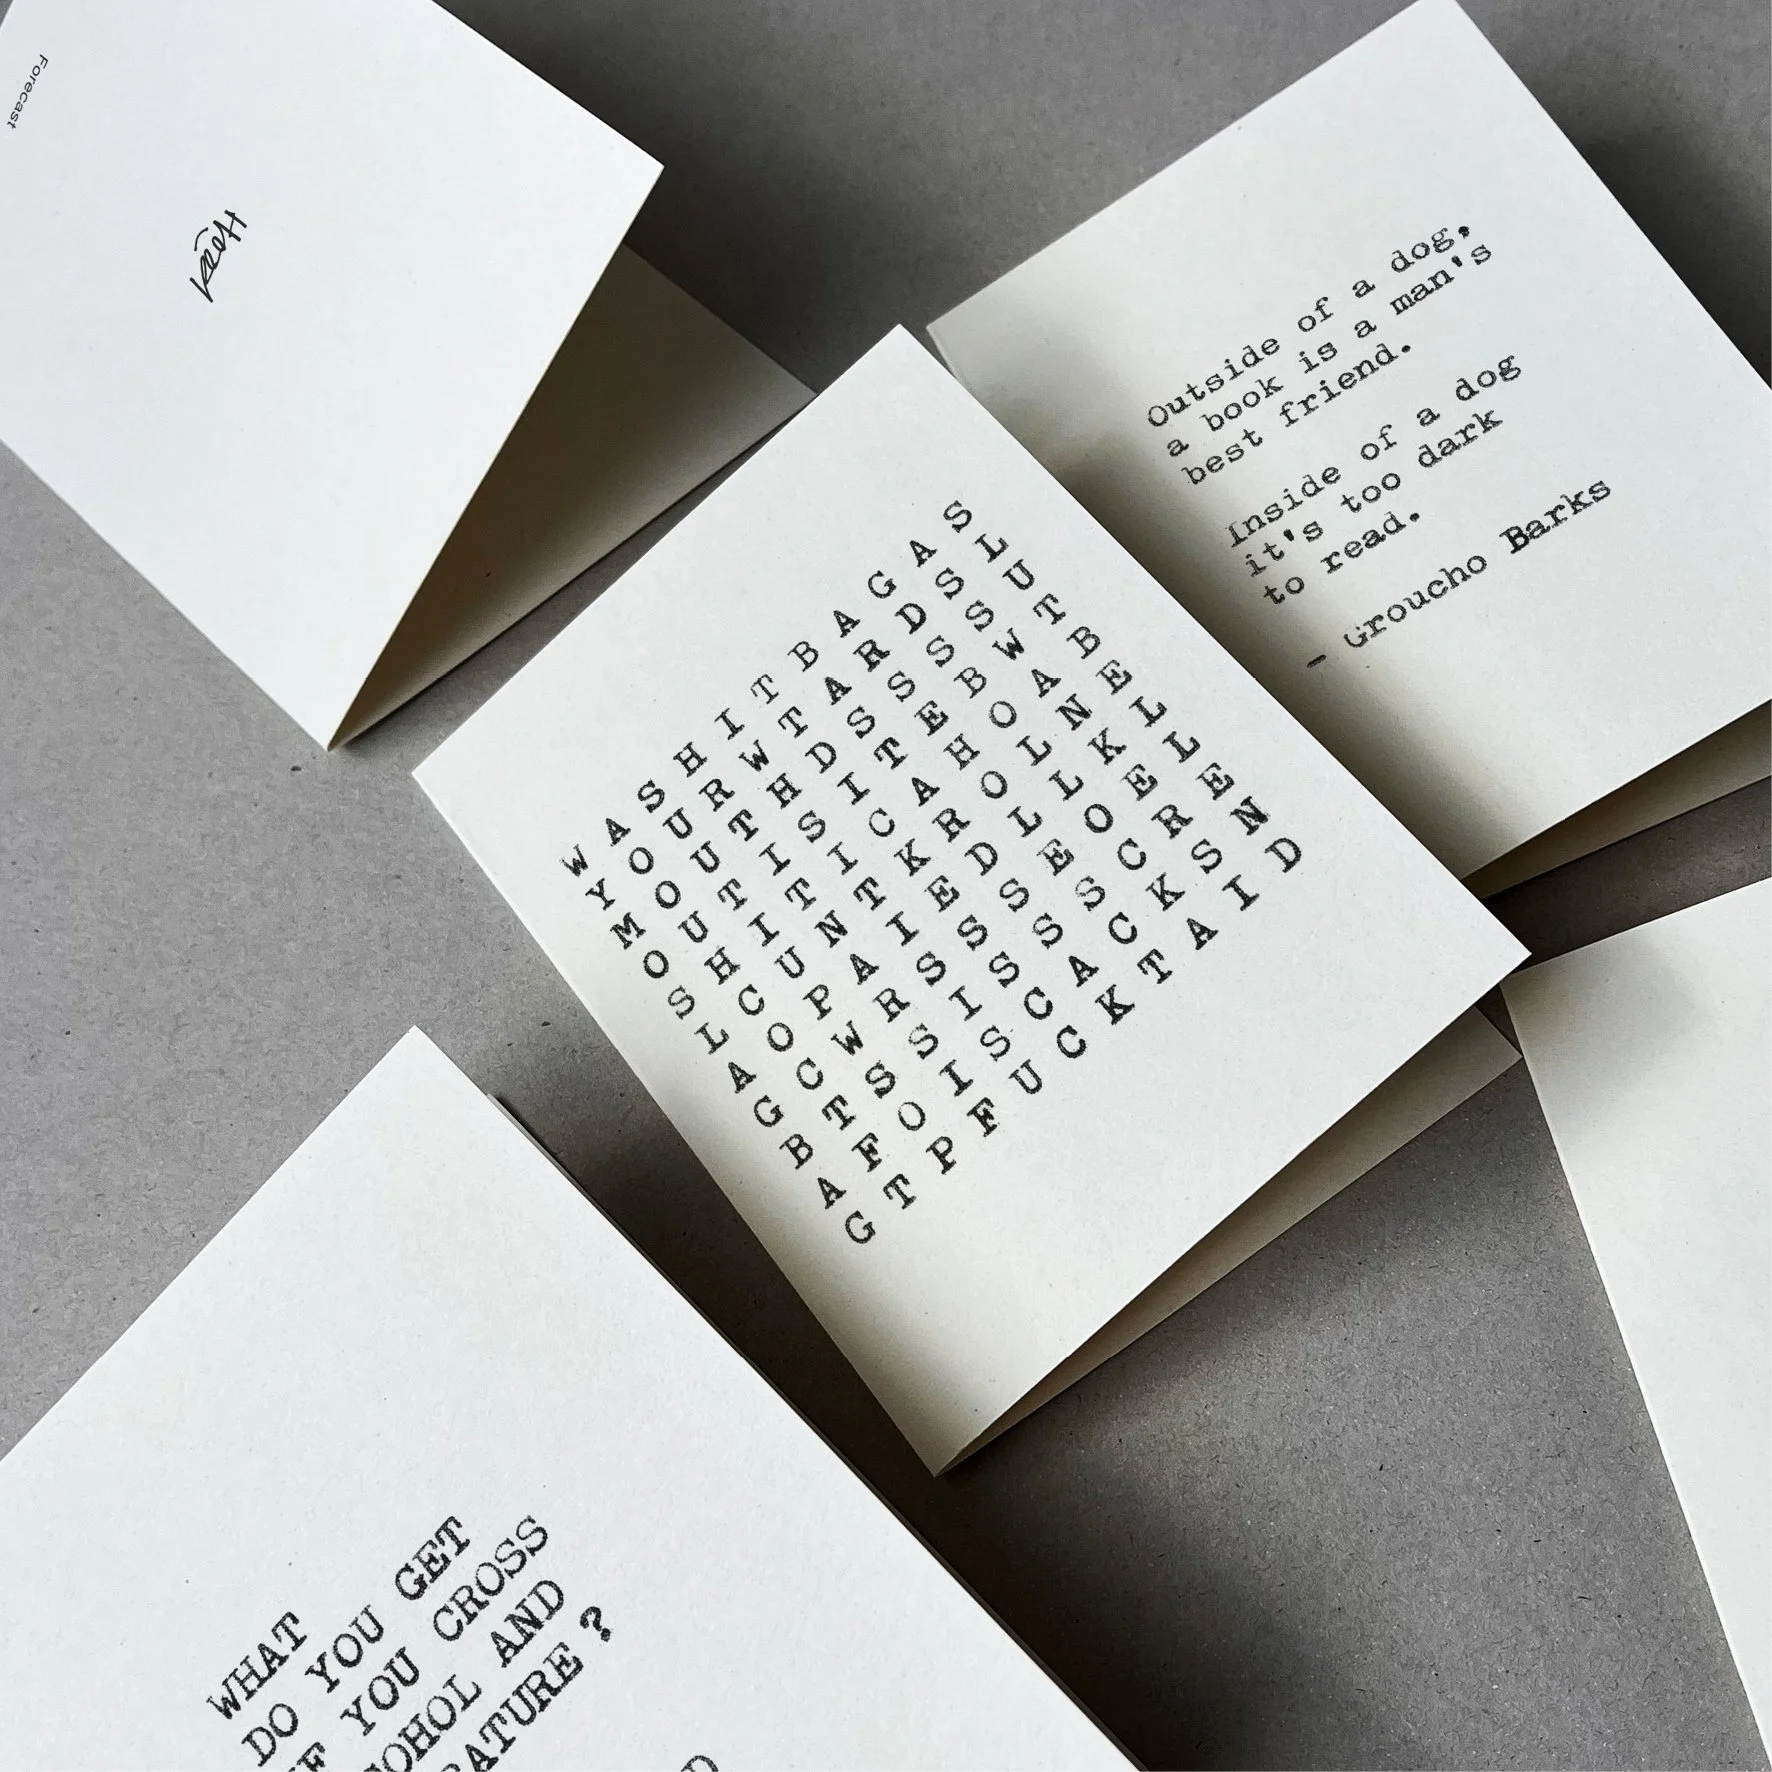 Forecast
Outside of a dog,
a book is a man's
best friend.
Inside of a dog
it's too dark
to read.
- Groucho Barks
W A S H I T B A G A S
Y O U R W T A R D S L
M O U T H D S S S S U
O U T I S I T E B W T
S H I T I C A H O A B
L C U N T K R O L N E
A O P A I E D L L K L
G C W R S S S E O E L
B T S S I S S S C R E
A F O I S C A C K S N
G T P F U C K T A I D
WHAT
DO YOU GET
F YOU CROSS
COHOL AND
RATURE ?